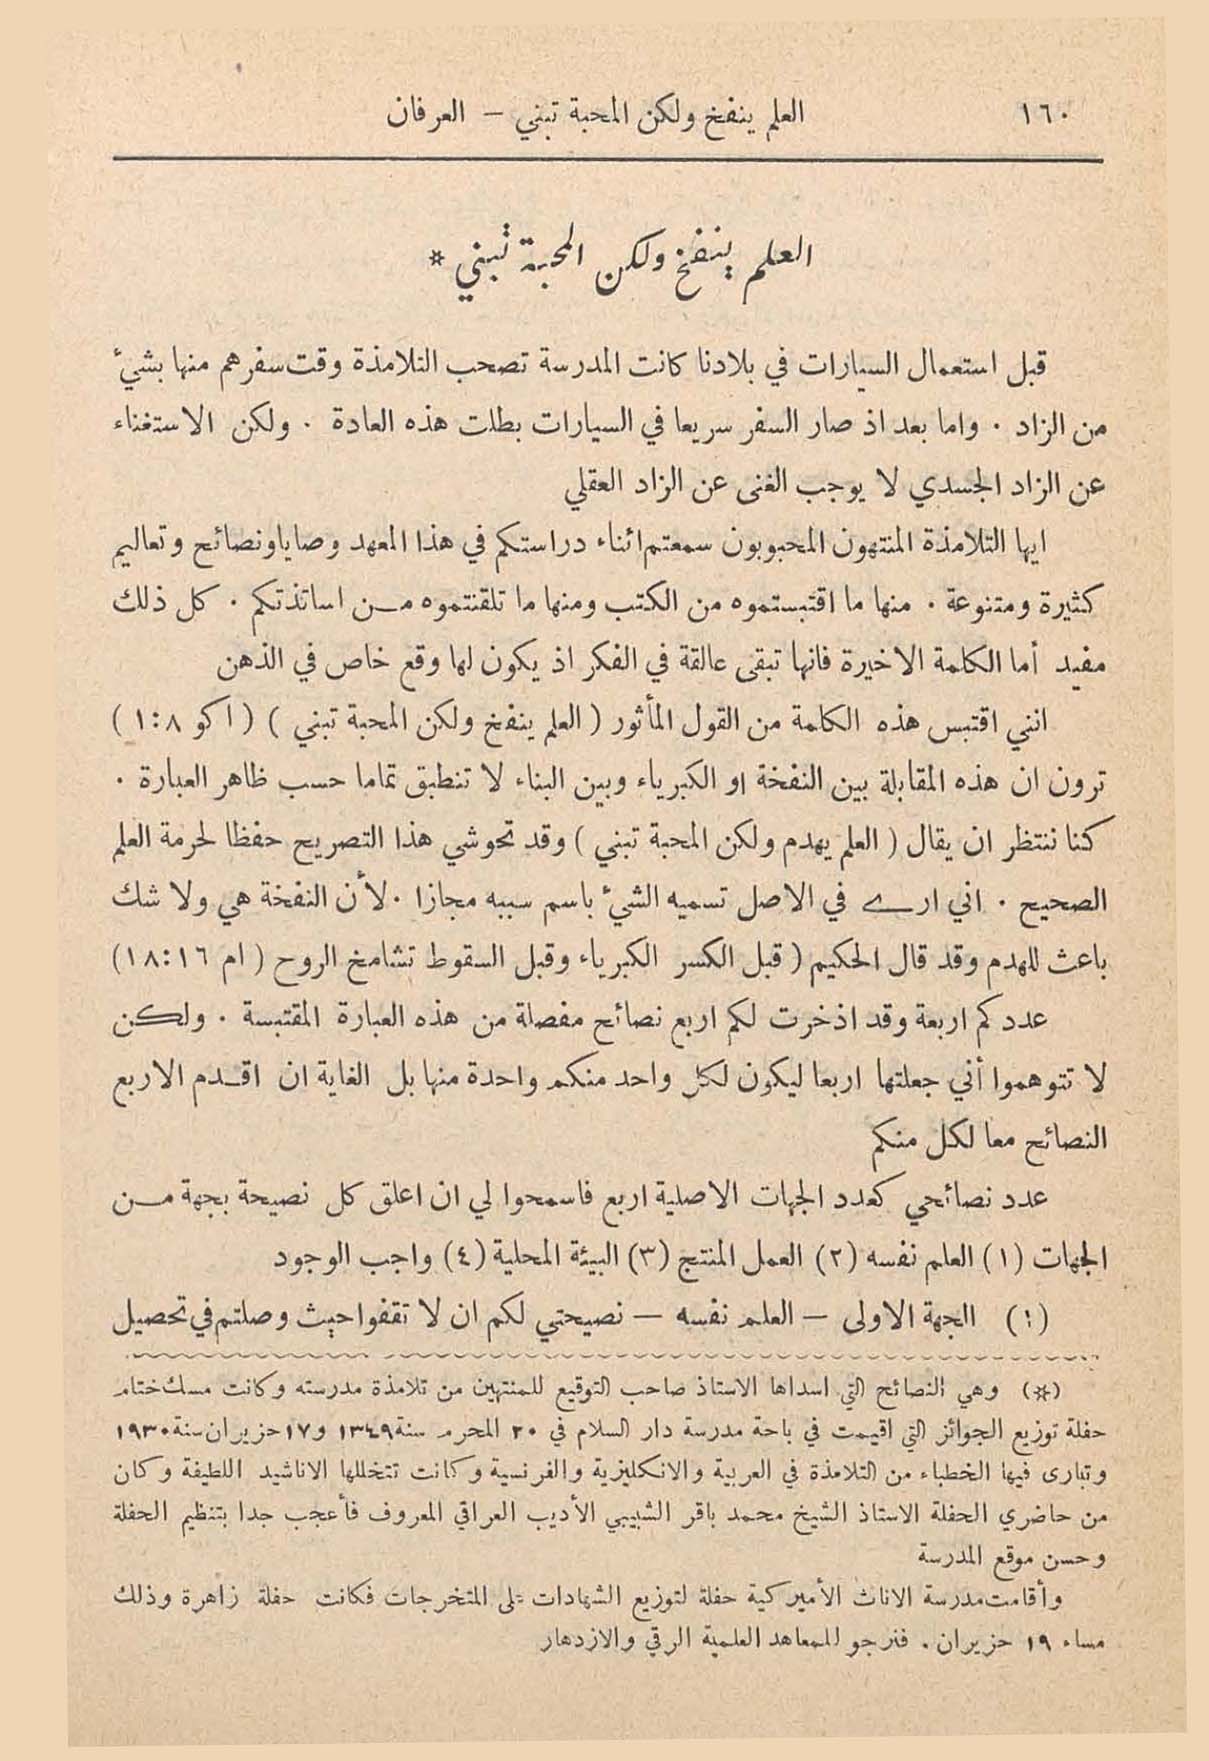 ١٦٠
العلم ينفخ ولكن المحبة تبني – العرفان
العلم ينفخ ولكن المحبة تبني *
قبل استعمال السيارات في بلادنا كانت المدرسة تصحب التلامذة وقت سفرهم منها بشيء
من الزاد . واما بعد اذ صار السفر سريعا في السيارات بطلت هذه العادة . ولكن الاستغناء
عن الزاد الجسدي لا يوجب الغنى عن الزاد العقلي
ايها التلامذة المنتهون المحبوبون سمعتم اثناء دراستكم في هذا المعهد وصايا ونصائح وتعاليم
كثيرة ومتنوعة . منها ما اقتبستموه من الكتب ومنها ما تلقنتموه من اساتذتكم . كل ذلك
مفيد أما الكلمة الاخيرة فانها تبقى عالقة في الفكر اذ يكون لها وقع خاص في الذهن
انني اقتبس هذه الكلمة من القول المأثور ( العلم ينفخ ولكن المحبة تبني ) ( ا كو ٨:١ )
ترون ان هذه المقابلة بين النفخة او الكبرياء وبين البناء لا تنطبق تماما حسب ظاهر العبارة .
كنا ننتظر ان يقال ( العلم يهدم ولكن المحبة تبني ) وقد تحوشي هذا التصريح حفظا لحرمة العلم
الصحيح . اني ارى في الاصل تسميه الشيء باسم سببه مجازا . لأن النفخة هي ولا شك
باعث للهدم وقد قال الحكيم ( قبل الكسر الكبرياء وقبل السقوط تشامخ الروح ( ام ١٨:١٦ )
عددكم اربعة وقد اذخرت لكم اربع نصائح مفصلة من هذه العبارة المقتبسة . ولكن
لا تتوهموا أني جعلتها اربعا ليكون لكل واحد منكم واحدة منها بل الغاية ان اقدم الاربع
النصائح معا لكل منكم
عدد نصائحي كعدد الجهات الاصلية اربع فاسمحوا لي ان اعلق كل نصيحة بجهة من
الجهات (١) العلم نفسه (٢) العمل المنتج (٣) البيئة المحلية (٤) واجب الوجود
(١) الجهة الاولى – العلم نفسه – نصيحتي لكم ان لا تقفوا حيث وصلتم في تحصيل
(*) وهي النصائح التي اسداها الاستاذ صاحب التوقيع للمنتهين من تلامذة مدرسته وكانت مسك ختام
حفلة توزيع الجوائز التي اقيمت في باحة مدرسة دار السلام في ٢٠ المحرم سنة ١٣٤٩ و١٧ حزيران سنة ١٩٣٠
وتبارى فيها الخطباء من التلامذة في العربية والانكليزية والفرنسية وكانت تتخللها الاناشيد اللطيفة وكان
من حاضري الحفلة الاستاذ الشيخ محمد باقر الشبيبي الأديب العراقي المعروف فأعجب جدا بتنظيم الحفلة
وحسن موقع المدرسة
وأقامت مدرسة الاناث الأميركية حفلة لتوزيع الشهادات على المتخرجات فكانت حفلة زاهرة وذلك
مساء ١٩ حزيران . فنرجو للمعاهد العلمية الرقي والازدهار